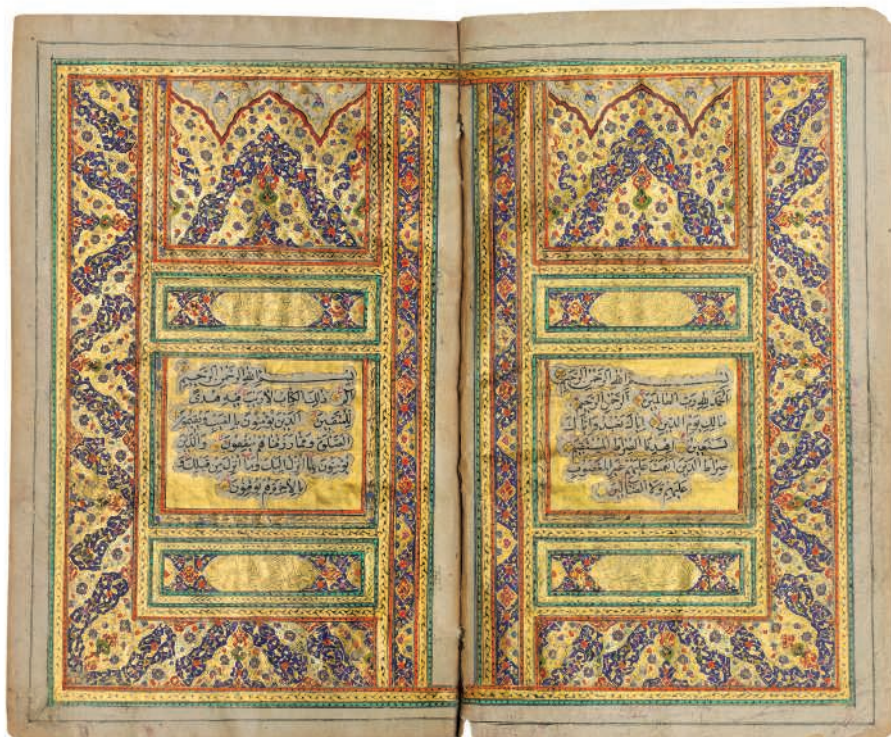 بسم الله الرحمن الرحيم
الحمد لله رب العالمين الرحمن الرحيم
مالك يوم الدين اياك نعبد واياك
نستعين اهدنا الصراط المستقيم
صراط الذين انعمت عليهم غير المغضوب
عليهم ولا الضالين
بسم الله الرحمن الرحيم
الم ذلك الكتاب لا ريب فيه هدى
للمتقين الذين يؤمنون بالغيب ويقيمون
الصلوة ومما رزقناهم ينفقون والذين
يؤمنون بما انزل اليك وما انزل من قبلك
وبالآخرة هم يوقنون